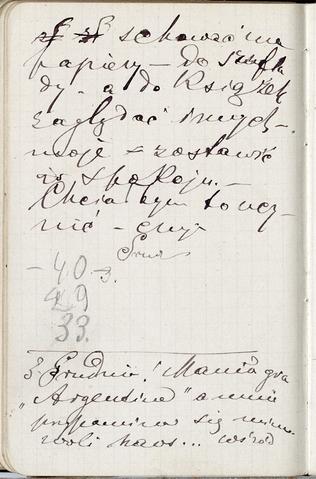 schować me
papiery – do szufla
dy – a do książek
zaglądać innych –
moje – zostawić
w spokoju. –
Chciałbym to uczy-
nić – czy
– 40 –
29
33.
3 Grudnia! Mania gra
„Argentine” a mnie
przypomina się mimo-
woli ... wśród